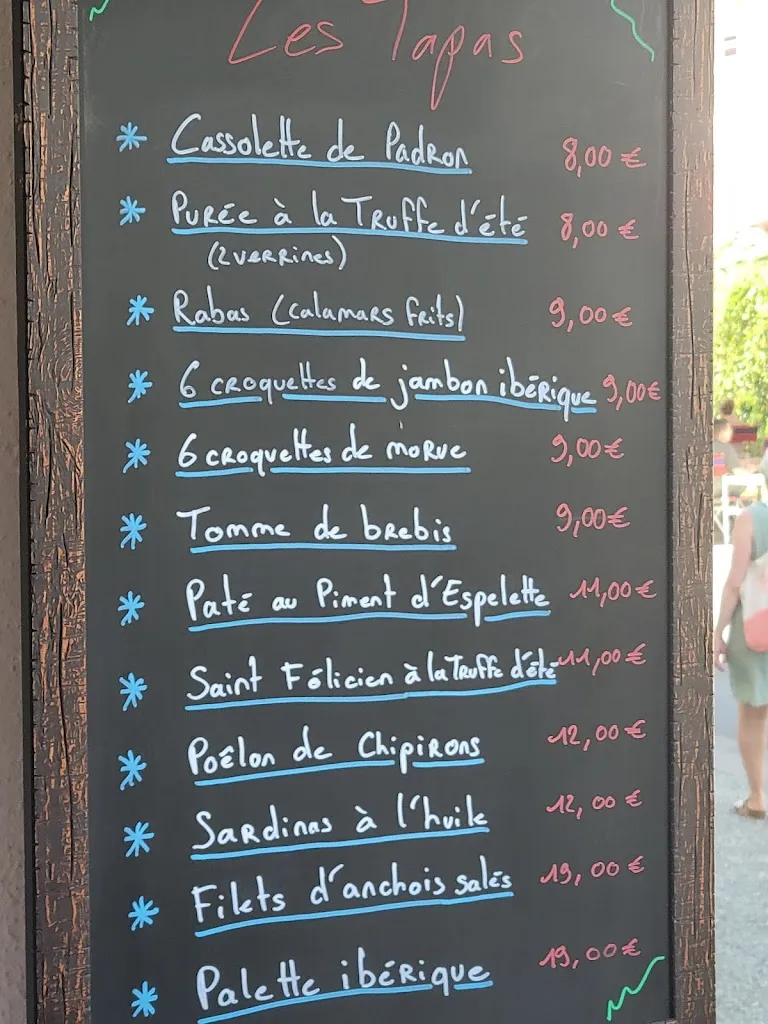 Les Tapas
* Cassolette de Padron 8,00 €
* Purée à la Truffe d'été 8,00 €
(2 verrines)
* Rabas (Calamars frits) 9,00 €
* 6 croquettes de jambon ibérique 9,00 €
* 6 croquettes de morue 9,00 €
* Tomme de brebis 9,00 €
* Paté au Piment d'Espelette 11,00 €
* Saint Félicien à la Truffe d'été 11,00 €
* Poêlon de Chipirons 12,00 €
* Sardinas à l'huile 12,00 €
* Filets d'anchois salés 19,00 €
* Palette ibérique 19,00 €